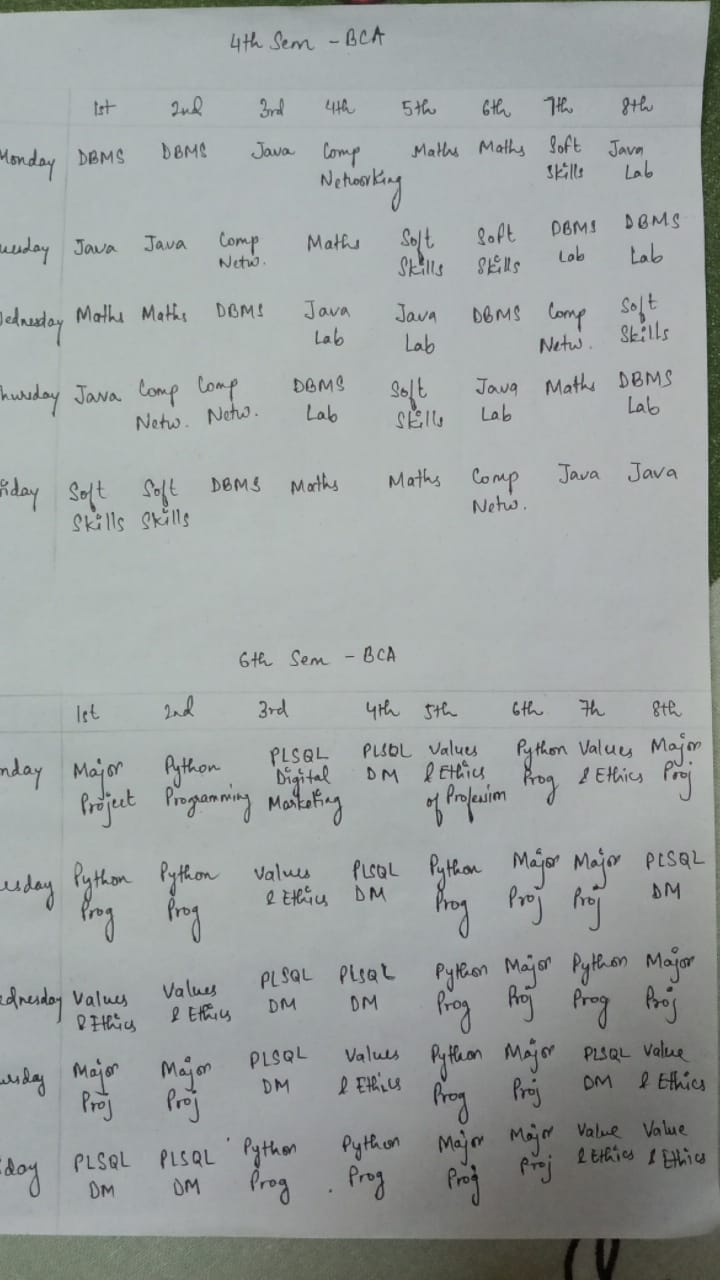 4th Sem - BCA
1st 2nd 3rd 4th 5th 6th 7th 8th
Monday DBMS DBMS Java Comp Networking Maths Maths Soft Skills Java Lab
uesday Java Java Comp Netw. Maths Soft Skills Soft Skills DBMS Lab DBMS Lab
Wednesday Maths Maths DBMS Java Lab Java Lab DBMS Comp Netw. Soft Skills
hursday Java Comp Netw. Comp Netw. DBMS Lab Soft Skills Java Lab Maths DBMS Lab
riday Soft Skills Soft Skills DBMS Maths Maths Comp Netw. Java Java
6th Sem - BCA
1st 2nd 3rd 4th 5th 6th 7h 8th
nday Major Project Python Programming PLSQL Digital Marketing PLSQL DM Values & Ethics of Profession Python Prog Values & Ethics Major Proj
esday Python Prog Python Prog Values & Ethics PLSQL DM Python Prog Major Proj Major Proj PLSQL DM
ednesday Values & Ethics Values & Ethics PLSQL DM PLSQL DM Python Prog Major Proj Python Prog Major Proj
ursday Major Proj Major Proj PLSQL DM Values & Ethics Python Prog Major Proj PLSQL DM Value & Ethics
iday PLSQL DM PLSQL DM Python Prog Python Prog Major Proj Major Proj Value & Ethics Value & Ethics